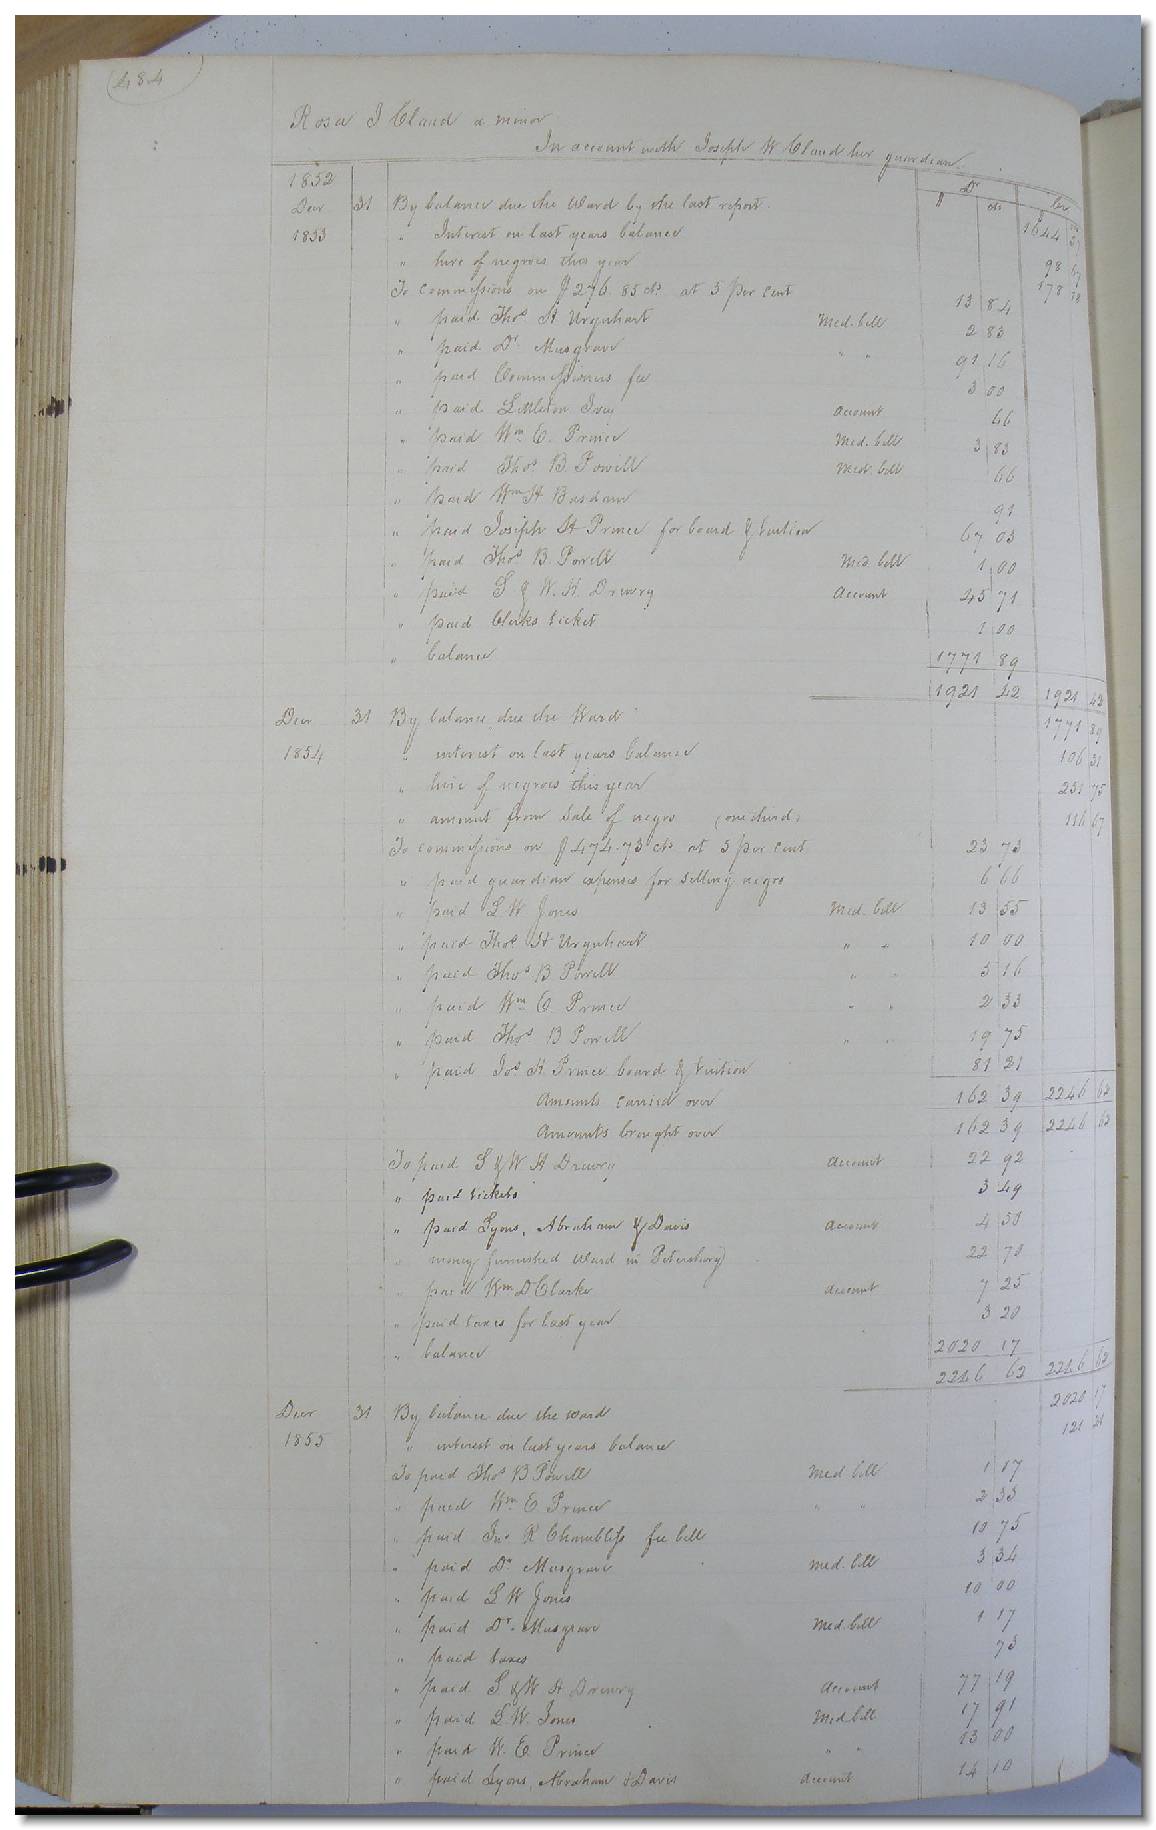 484
Rosa I Claud a minor
In account with Joseph W Claud her guardian.
Dr Cr
$ cts $ cts
1852
Decr 31 By balance due the Ward by the last report. 1644 57
1853 " Interest on last years balance 98 67
" hire of negroes this year 178 18
To commissions on $276.85 cts at 5 per cent 13 84
" paid Thos. H Urquhart Med. bill 2 83
" paid Dr. Musgrave " " 91 16
" paid Commissioners fee 3 00
" paid Littleton account 66
" paid Wm E. Prince Med. bill 3 83
" paid Thos. B. Powell Med. bill 66
" paid Wm H 91
" paid Joseph H Prince for board & tuition 67 03
" paid Thos B. Powell Med. bill 1 00
" paid S & W. H. Drewry Account 45 71
" paid Clerks ticket 1 00
" balance 1771 89
1921 42 1921 42
Decr 31 By balance due the Ward 1771 89
1854 " interest on last years balance 106 31
" hire of negroes this year 251 75
" amount from sale of negro (one third) 116 67
To commissions on $474.73 cts at 5 per cent 23 73
" paid guardian expenses for selling negro 6 66
" paid L W Jones Med. bill 13 55
" paid Thos H Urquhart " " 10 00
" paid Thos B Powell " " 5 16
" paid Wm E Prince " " 2 33
" paid Thos B Powell " " 19 75
" paid Jos. H Prince board & tuition 81 21
Amounts carried over 162 39 2246 62
Amounts brought over 162 39 2246 62
To paid S & W H Drewry account 22 92
" paid tickets 3 49
" paid Lyons, Abraham & Davis account 4 50
" money furnished Ward in Petersburg 22 70
" paid Wm D Clarke account 7 25
" paid taxes for last year 3 20
" balance 2020 17
2246 62 2246 62
Decr 31 By balance due the ward 2020 17
1855 " interest on last years balance 121 21
To paid Thos B Powell Med bill 1 17
" paid Wm E Prince " " 2 33
" paid Jno R Chambliss fee bill 10 75
" paid Dr Musgrave med. bill 3 34
" paid L W Jones 10 00
" paid Dr. Musgrave Med. bill 1 17
" paid taxes 75
" paid S & W H Drewry account 77 19
" paid L. W. Jones Med bill 17 91
" paid W. E. Prince " " 13 00
" paid Lyons, Abraham & Davis account 14 10